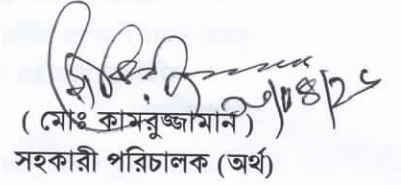 ( মোঃ কামরুজ্জামান )
সহকারী পরিচালক (অর্থ)